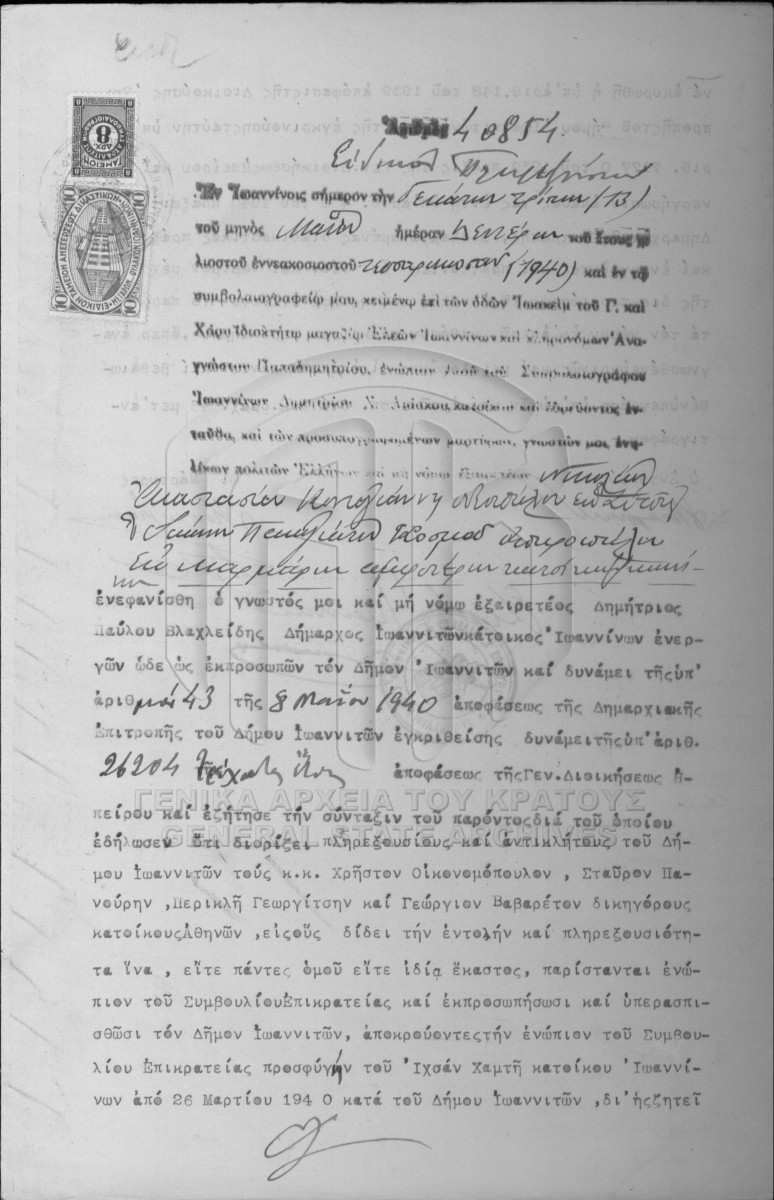 Ἀριθμὸς 40854.
Εἰδικὸν Πληρεξούσιον
Ἐν Ἰωαννίνοις σήμερον τὴν δεκάτην τρίτην (13)
τοῦ μηνὸς Μαΐου ἡμέραν Δευτέραν τοῦ ἔτους χι-
λιοστοῦ ἐννεακοσιοστοῦ τεσσαρακοστοῦ (1940) καὶ ἐν τῷ
συμβολαιογραφείῳ μου, κειμένῳ ἐπὶ τῶν ὁδῶν Ἰωακεὶμ τοῦ Γ. καὶ
Χάρυ ἰδιοκτήτῳ μαγαζίῳ Ἐλεῶν Ἰωαννίνων καὶ κληρονόμων Ἀνα-
γνώστου Παπαδημητρίου, ἐνώπιον ἐμοῦ τοῦ Συμβολαιογράφου
Ἰωαννίνων Δημητρίου Χ. κατοίκου καὶ ἑδρεύοντος ἐν-
ταῦθα, καὶ τῶν προσυπογραφομένων μαρτύρων, γνωστῶν μοι, ἐνη-
λίκων πολιτῶν Ἑλλήνων καὶ μὴ νόμῳ ἐξαιρετέων
ἐνεφανίσθη ὁ γνωστός μοι καί μή νόμῳ ἐξαιρετέος Δημήτριος
Παύλου Βλαχλείδης Δήμαρχος Ἰωαννιτῶνκάτοικος Ἰωαννίνων ἐνερ-
γῶν ὧδε ὡς ἐκπροσωπῶν τόν Δῆμον Ἰωαννιτῶν καί δυνάμει τῆςὑπ'
ἀριθμόν 43 τῆς 8 Μαΐου 1940 ἀποφάσεως τῆς Δημαρχιακῆς
Ἐπιτροπῆς τοῦ Δήμου Ἰωαννιτῶν ἐγκριθείσης δυνάμειτῆςὑπ' ἀριθ.
26204 ἀποφάσεως τῆςΓεν.Διοικήσεως Ἠ-
πείρου καί ἐζήτησε τήν σύνταξιν τοῦ παρόντοςδιά τοῦ ὁποίου
ἐδήλωσεν ὅτι διορίζει πληρεξουσίους καί ἀντικλήτους τοῦ Δή-
μου Ἰωαννιτῶν τούς κ.κ. Χρῆστον Οἰκονομόπουλον , Σταῦρον Πα-
νούρην ,Περικλῆ Γεωργίτσην καί Γεώργιον Βαβαρέτον δικηγόρους
κατοίκουςἈθηνῶν ,εἰςοὕς δίδει τήν ἐντολήν καί πληρεξουσιότη-
τα ἵνα , εἴτε πάντες ὁμοῦ εἴτε ἰδίᾳ ἕκαστος, παρίστανται ἐνώ-
πιον τοῦ ΣυμβουλίουἘπικρατείας καί ἐκπροσωπήσωσι καί ὑπερασπι-
σθῶσι τόν Δῆμον Ἰωαννιτῶν, ἀποκρούοντεςτήν ἐνώπιον τοῦ Συμβου-
λίου Ἐπικρατείας προσφυγήν τοῦ Ἰχσάν Χαμτῆ κατοίκου Ἰωαννί-
νων ἀπό 26 Μαρτίου 194 0 κατά τοῦ Δήμου Ἰωαννιτῶν ,δι'ἧςζητεῖ
ΓΕΝΙΚΑ ΑΡΧΕΙΑ ΤΟΥ ΚΡΑΤΟΥΣ
GENERAL STATE ARCHIVES